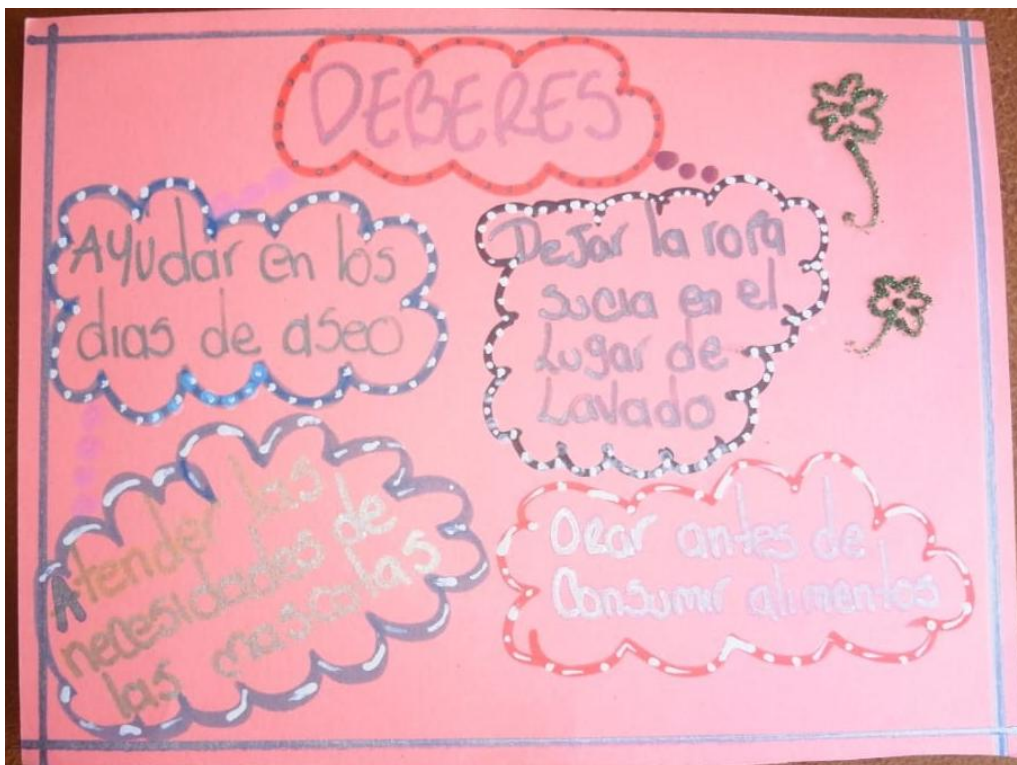 DEBERES
Ayudar en los
dias de aseo
Dejar la ropa
sucia en el
Lugar de
Lavado
Atender las
necesidades de
las mascotas
Orar antes de
Consumir alimentos